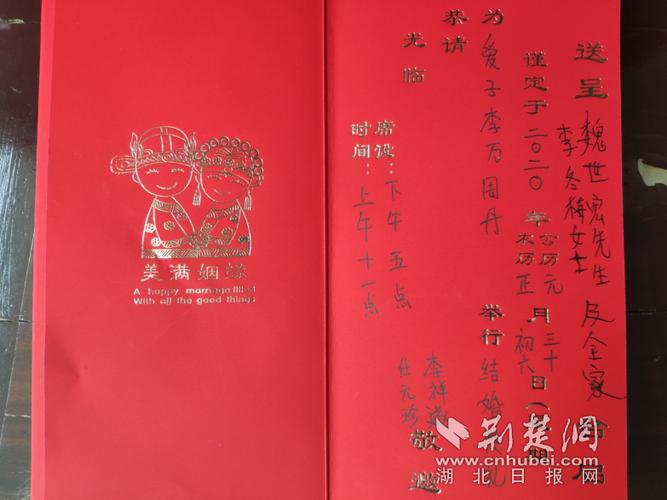 美满姻缘
A happy marriage filled
With all the good things
送呈 魏世宏先生 李冬梅女士 及全家
谨定于二〇二〇年 公历元 农历正 月 三十 初六 日（
为爱子李万周丹 举行结婚礼
恭请
光临
席设：下午五点
时间：上午十一点
李祥
任元珍
敬邀
荆楚网
www.cnhubei.com
湖北日报网